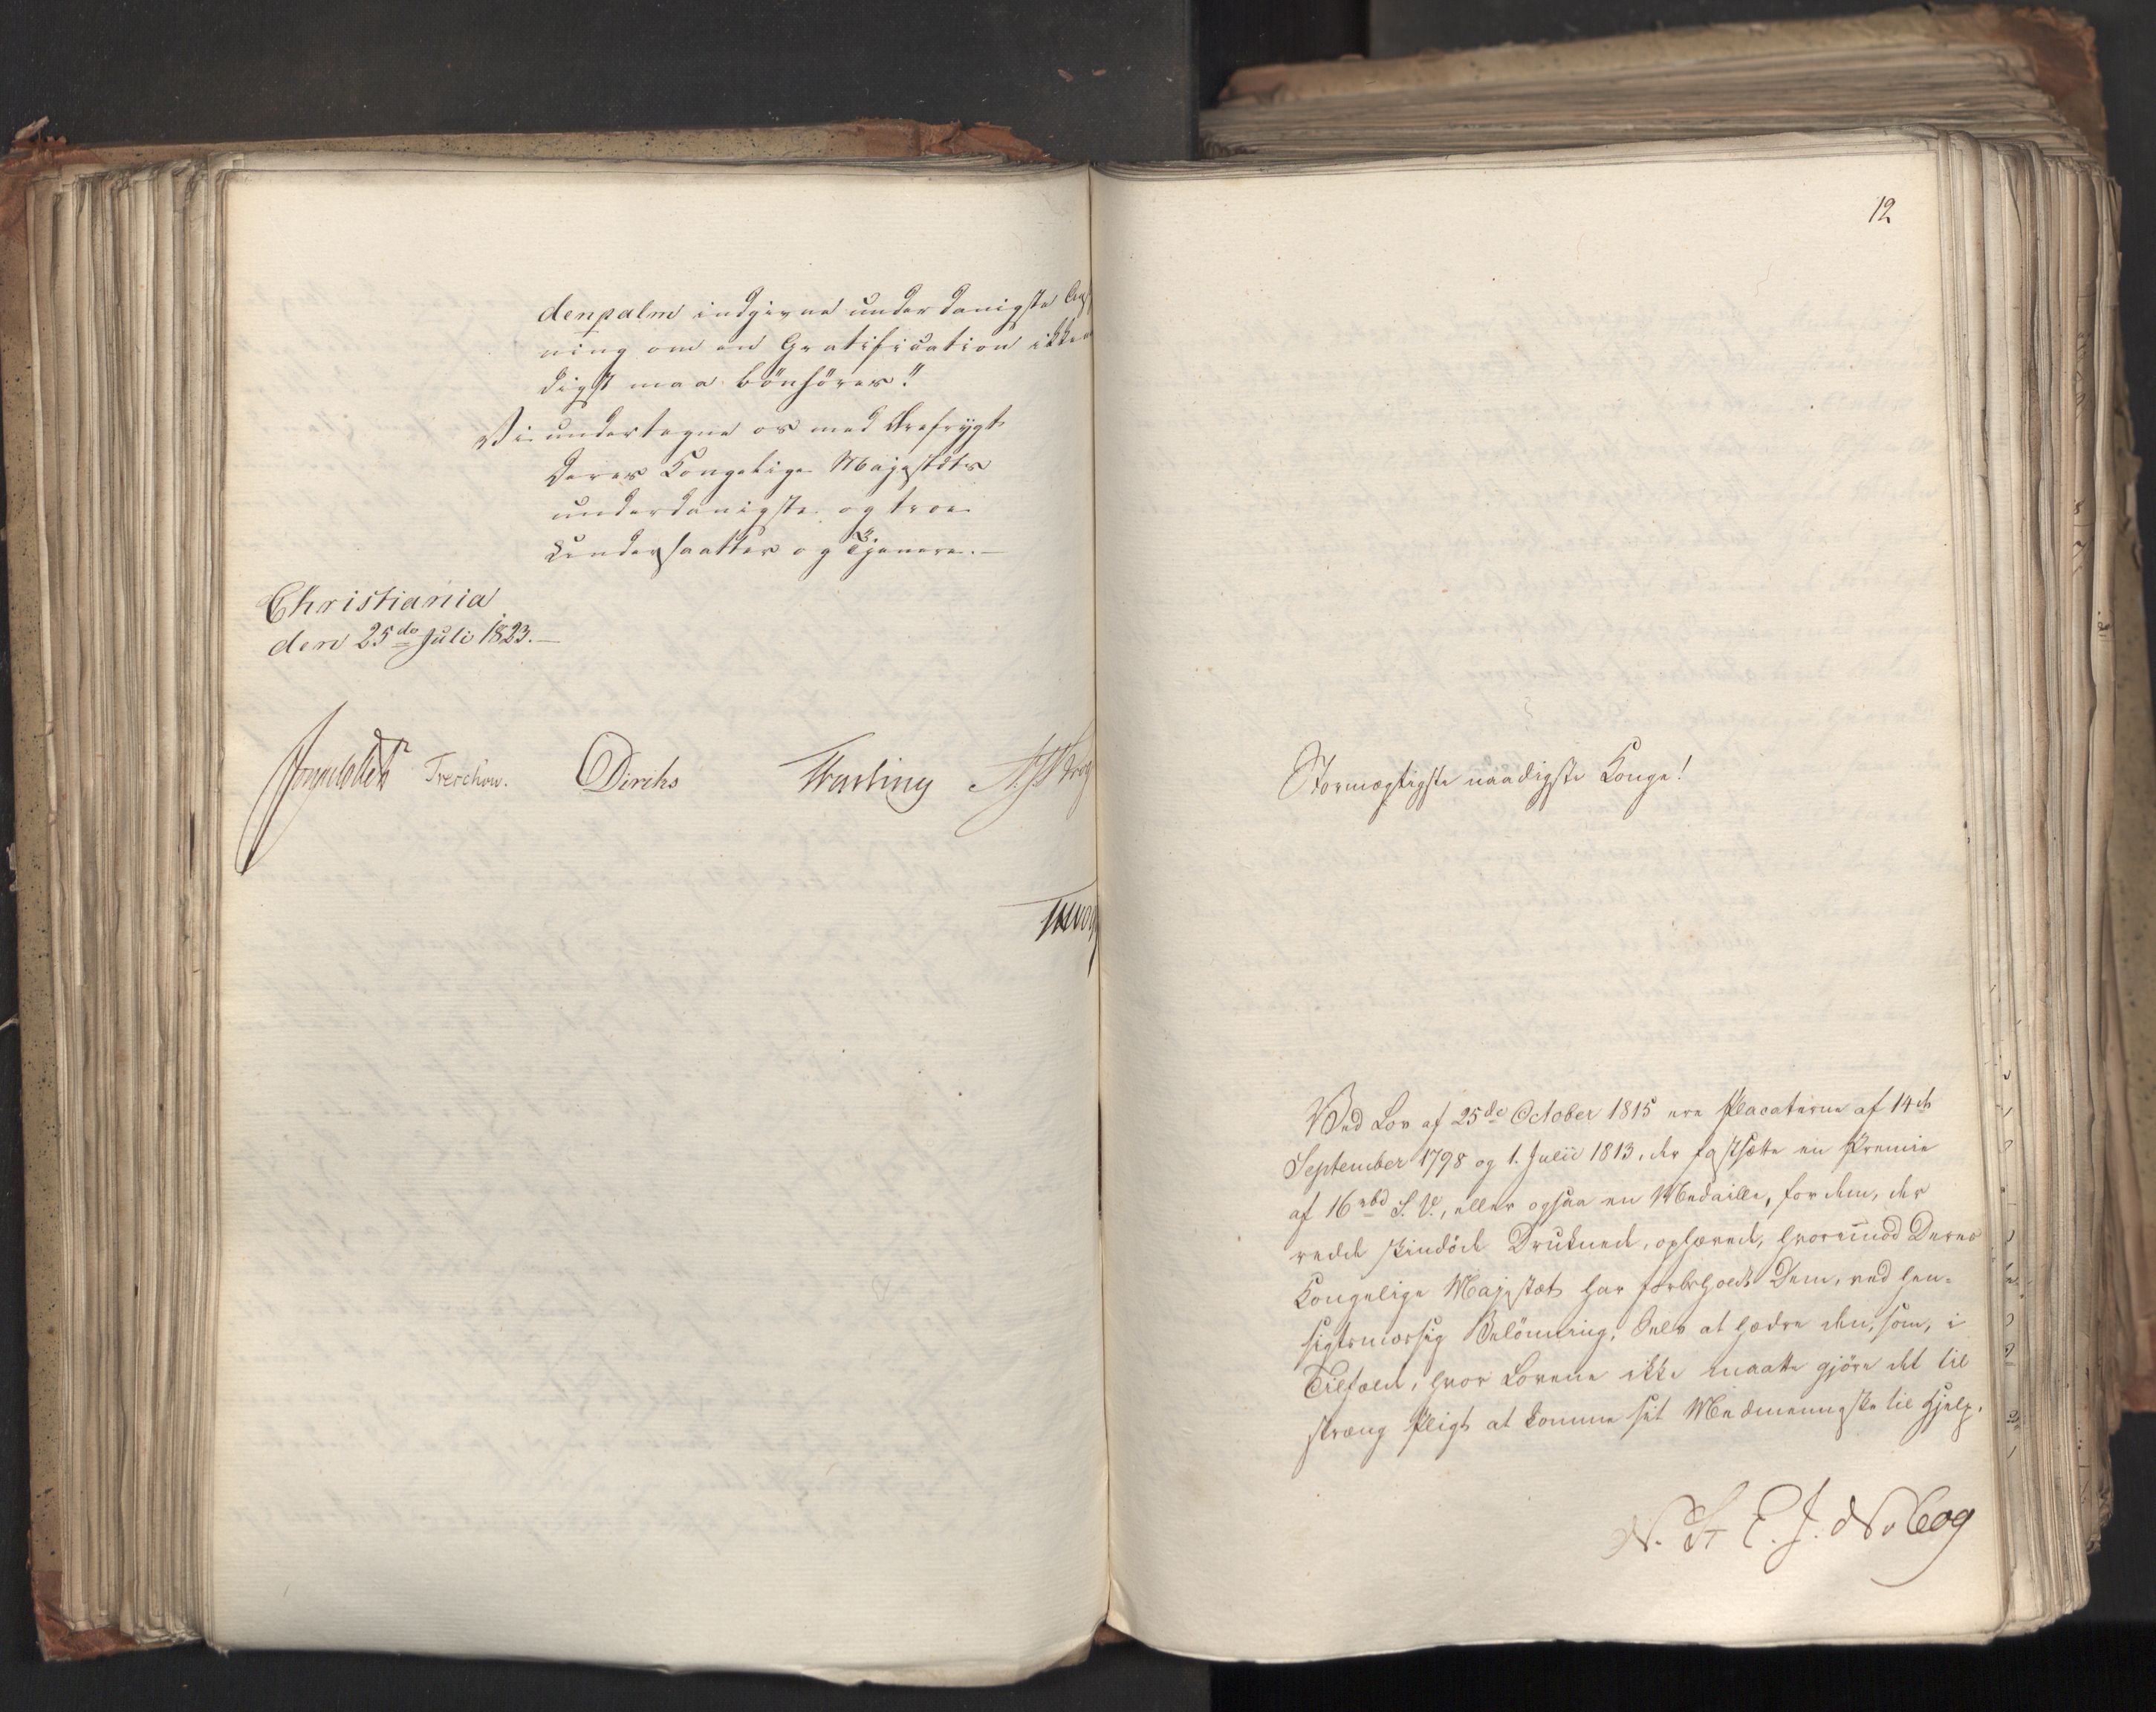 denpalm indgivne underdanigste
ning om en Gratification ikke
digst maa bönhöres."
Vi undertegne os med Ærefrygt
Deres Kongelige Majestæts
underdanigste og troe
Undersaatter og Tjenere. —
Christiania
den 25de Juli 1823. —
Treschow. Diriks
12
Stormægtigste naadigste Konge!
Ved Lov af 25de October 1815 ere Placaterne af 14de
September 1798 og 1. Julii 1813, der fastsætte en Premie
af 16 rbd S. V., eller ogsaa en Medaille, for dem, der
redde skindöde Druknede, ophævede, hvorimod Deres
Kongelige Majestæt har forbeholdt Dem, ved hen-
sigtsmæssig Belönning, Selv at hædre den, som, i
Tilfælde, hvor Lovene ikke maatte gjöre det til
stræng Pligt at komme sit Medmenneske til Hjelp.